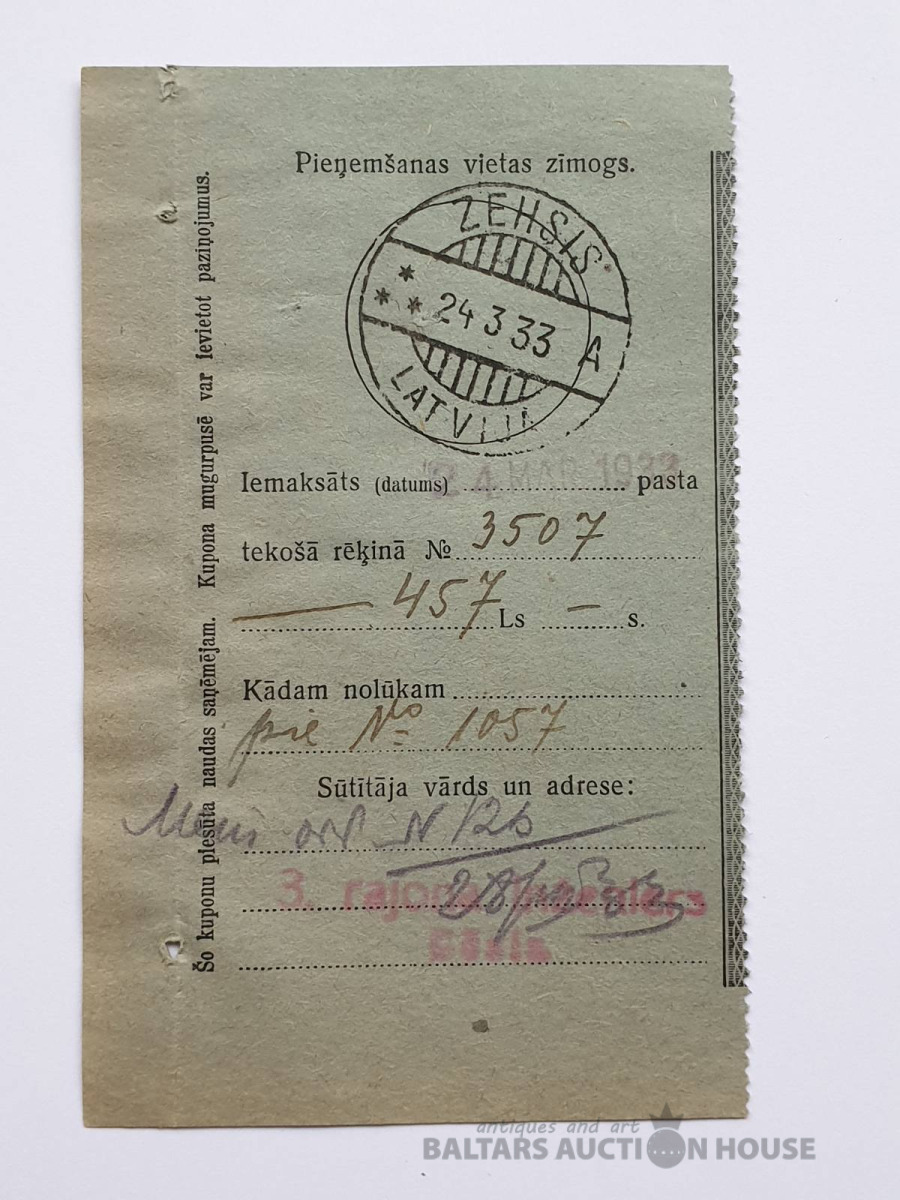 Pieņemšanas vietas zīmogs.
ZEHSIS
24 3 33 A
LATVIJ
Iemaksāts (datums) 24 MAR 1933 pasta
tekošā rēķinā № 3507
— 457 Ls — s.
Kādam nolūkam
pie № 1057
Sūtītāja vārds un adrese:
N 126
3. rajona
Šo kuponu piesūta naudas saņēmējam. Kupona mugurpusē var ievietot paziņojumus.
antiques and art
BALTARS AUCTION HOUSE